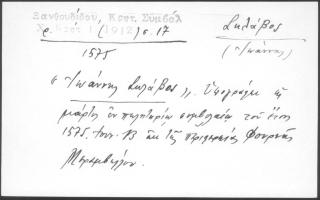 Ξανθουδίδου, Κρητ. Συμβόλ
Χρ. Κρητ. 1 (1912) σ. 17
Σκλάβος
(Ἰωάννης)
1575
"Ἰωάννης Σκλάβος". Ὑπογράφει ὡς
μάρτυς ἐν πωλητηρίῳ συμβολαίῳ τοῦ ἔτους
1575, Ἰουν. 13 ἐκ τῆς περιφερείας Φουρνῆς
Μεραμβέλλου.